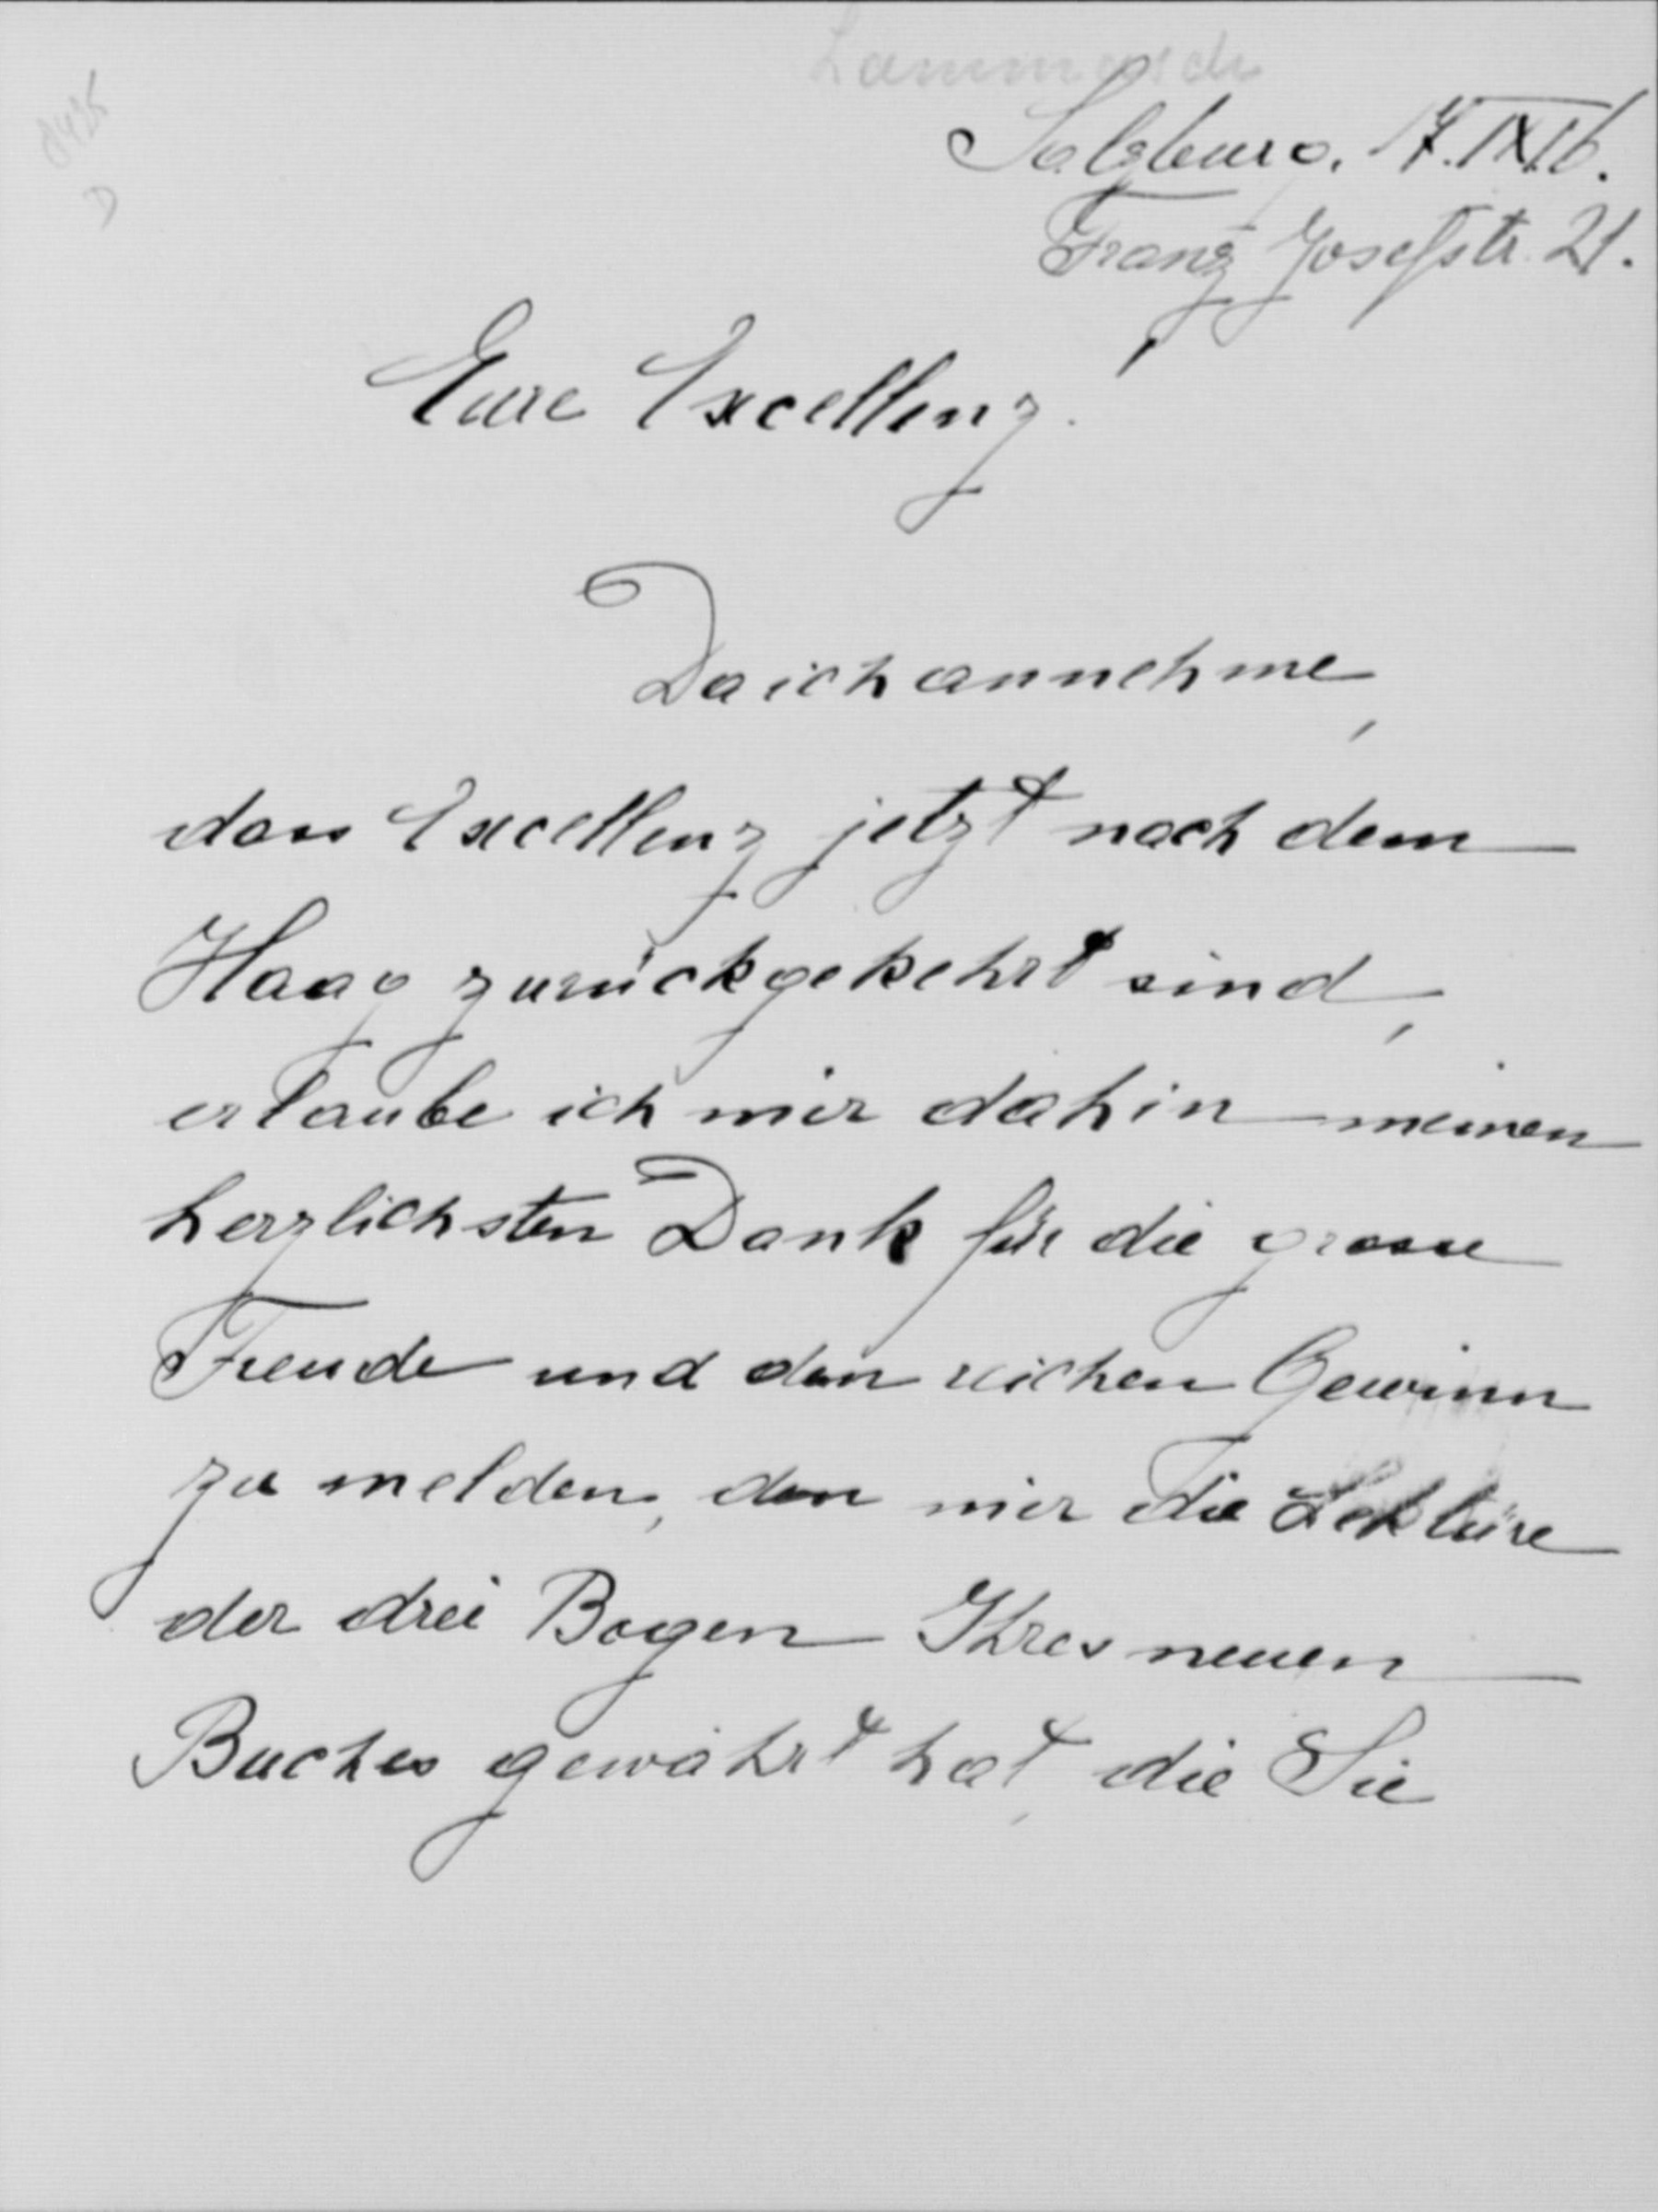 Lammasch
Salzburg, 17. IX 16.
Franz Josefstr. 21.
Eure Excellenz!
Da ich annehme,
dass Excellenz jetzt nach dem
Haag zurückgekehrt sind,
erlaube ich mir dahin meinen
herzlichsten Dank für die grosse
Freude und den reichen Gewinn
zu melden, den mir die Lektüre
der drei Bogen Ihres neuen
Buches gewährt hat, die Sie